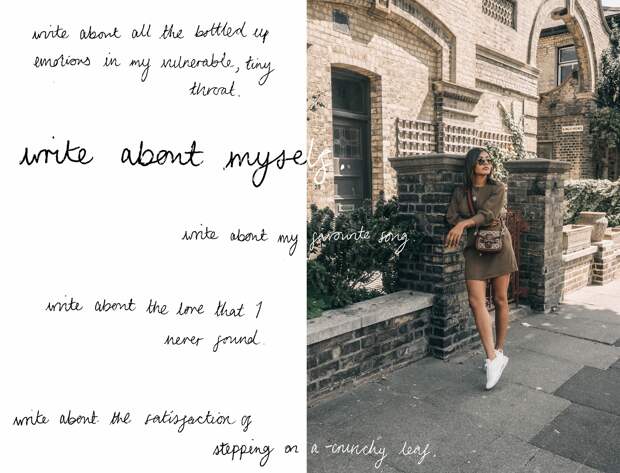 write about all the bottled up
emotions in my vulnerable, tiny
throat.
write about myself
write about my favourite song
write about the love that I
never found.
write about the satisfaction of
stepping on a crunchy leaf.